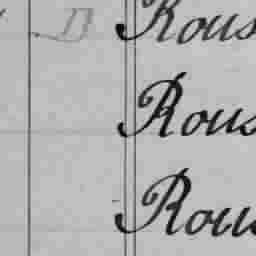 D Rous
Rous
Rous